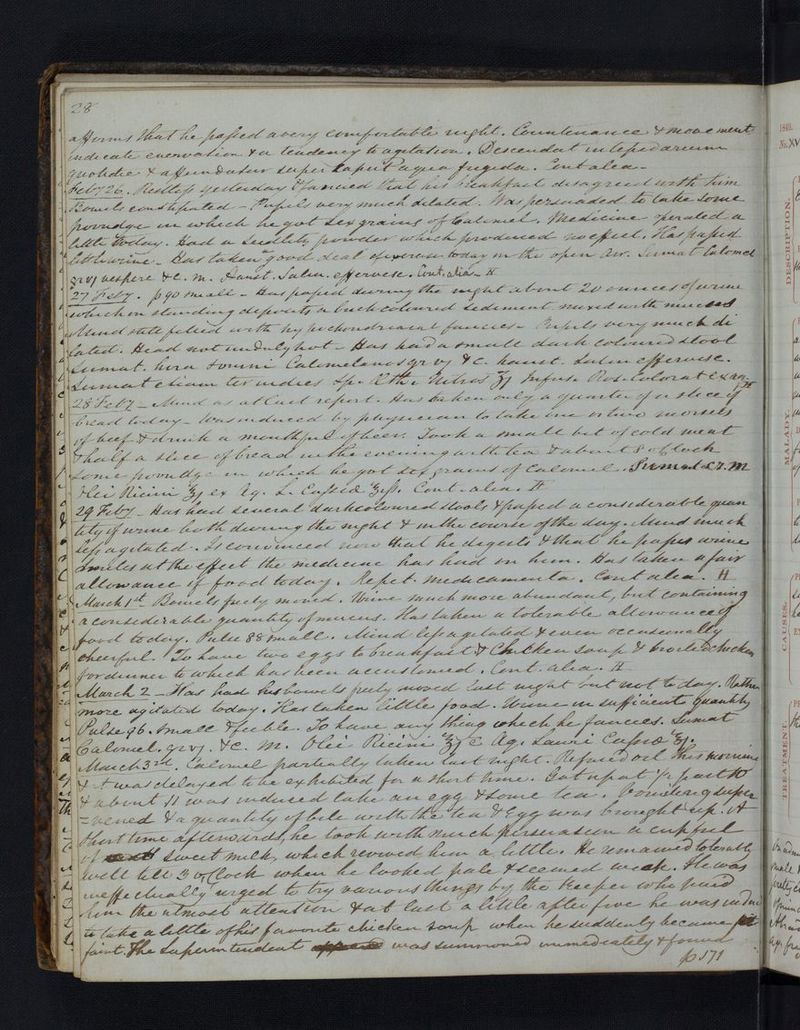 28
affirms that he passed a very comfortable night. Countenance & movement
indicate enervation & a tendency to agitation. Descendat in tepidarium
quotidie & affundatur super caput aqua frigida. Cont alea.
Feby 26. Restless yesterday & fancied that his breakfast disagreed with him
Bowels constipated - Pupils very much dilated. Was persuaded to take some
porridge in which he got six grains of Calomel. Medicine operated a
little today. Had a Seidlitz powder which produced no effect. Has passed
little urine. Has taken good deal of exercise today in the open air. Sumat Calomel
gr vj vespere &c. m. Haust. Salin. effervesc. Cont. alia. H
27 Feby. p 90 small - Has passed during the night about 20 ounces of urine
which on standing deposits a buck coloured sediment mixed with mucus
Mind still filled with hypochondriacal fancies. Pupils very much di
lated. Head not unduly hot - Has had a small dark coloured stool
Sumat. hora somni Calomelanos gr vj &c. haust. Salin effervesc.
Sumat etiam ter in dies Sp. Ether Nitros ʒj Infus. Ros.
28 Feby - Mind as at last report. Has taken only a quarter of a slice of
bread today - Was induced by physician to take one or two morsels
of beef & drink a mouthful of beer. Took a small bit of cold meat
& half a slice of bread in the evening with tea & about 8 o'Clock
some porridge in which he got six grains of Calomel. Sumat c. m
Olei Ricini ʒj ex Aq. L. Cassiæ ʒiss. Cont. alia. H
29 Feby - Has had several dark coloured stools & passed a considerable quan
tity of urine both during the night & in the course of the day. Mind much
less agitated. Is convinced now that he digests & that he passes urine
smiles at the effect the medicine has had on him. Has taken a fair
allowance of food today. Repet. medicamenta. Cont alea. H
March 1st Bowels freely moved. Urine much more abundant, but containing
a considerable quantity of mucus. Has taken a tolerable allowance of
food today. Pulse 88 small. Mind less agitated & even occasionally
cheerful. To have two eggs to breakfast & Chicken soup & broiled chicken
for dinner to which has been accustomed. Cont. alia. H
March 2 - Has had his bowels freely moved last night but not to day. Rather
more agitated today. Has taken little food. Urine in sufficient quantity
Pulse 96. small & feeble. To have any thing which he fancies. Sumat
Calomel. gr vj. &c. m. Olei Ricini ʒj c Aq. Lauri Cassiæ ʒj.
March 3rd. Calomel partially taken last night. Refused oil this morning
& it was delayed to be exhibited for a short time. Got up at 1/2 past 10
& about 11 was induced take an egg & some tea. Vomiting super
=vened & a quantity of bile with the tea & Egg was brought up. A
short time afterwards, he took with much persuasion a cupful
of sweet milk, which revived him a little. He remained tolerably
well till 3 o'Clock when he looked pale & seemed weak. He was
ineffectually urged to try various things by the Keeper who paid
him the utmost attention & at last a little after five he was induced
to take a little of his favorite chicken soup when he suddenly became
faint. The Superintendent was summoned immediately & found
p 171
1840.
No. XV
DESCRIPTION.
MALADY.
CAUSES.
TREATMENT.